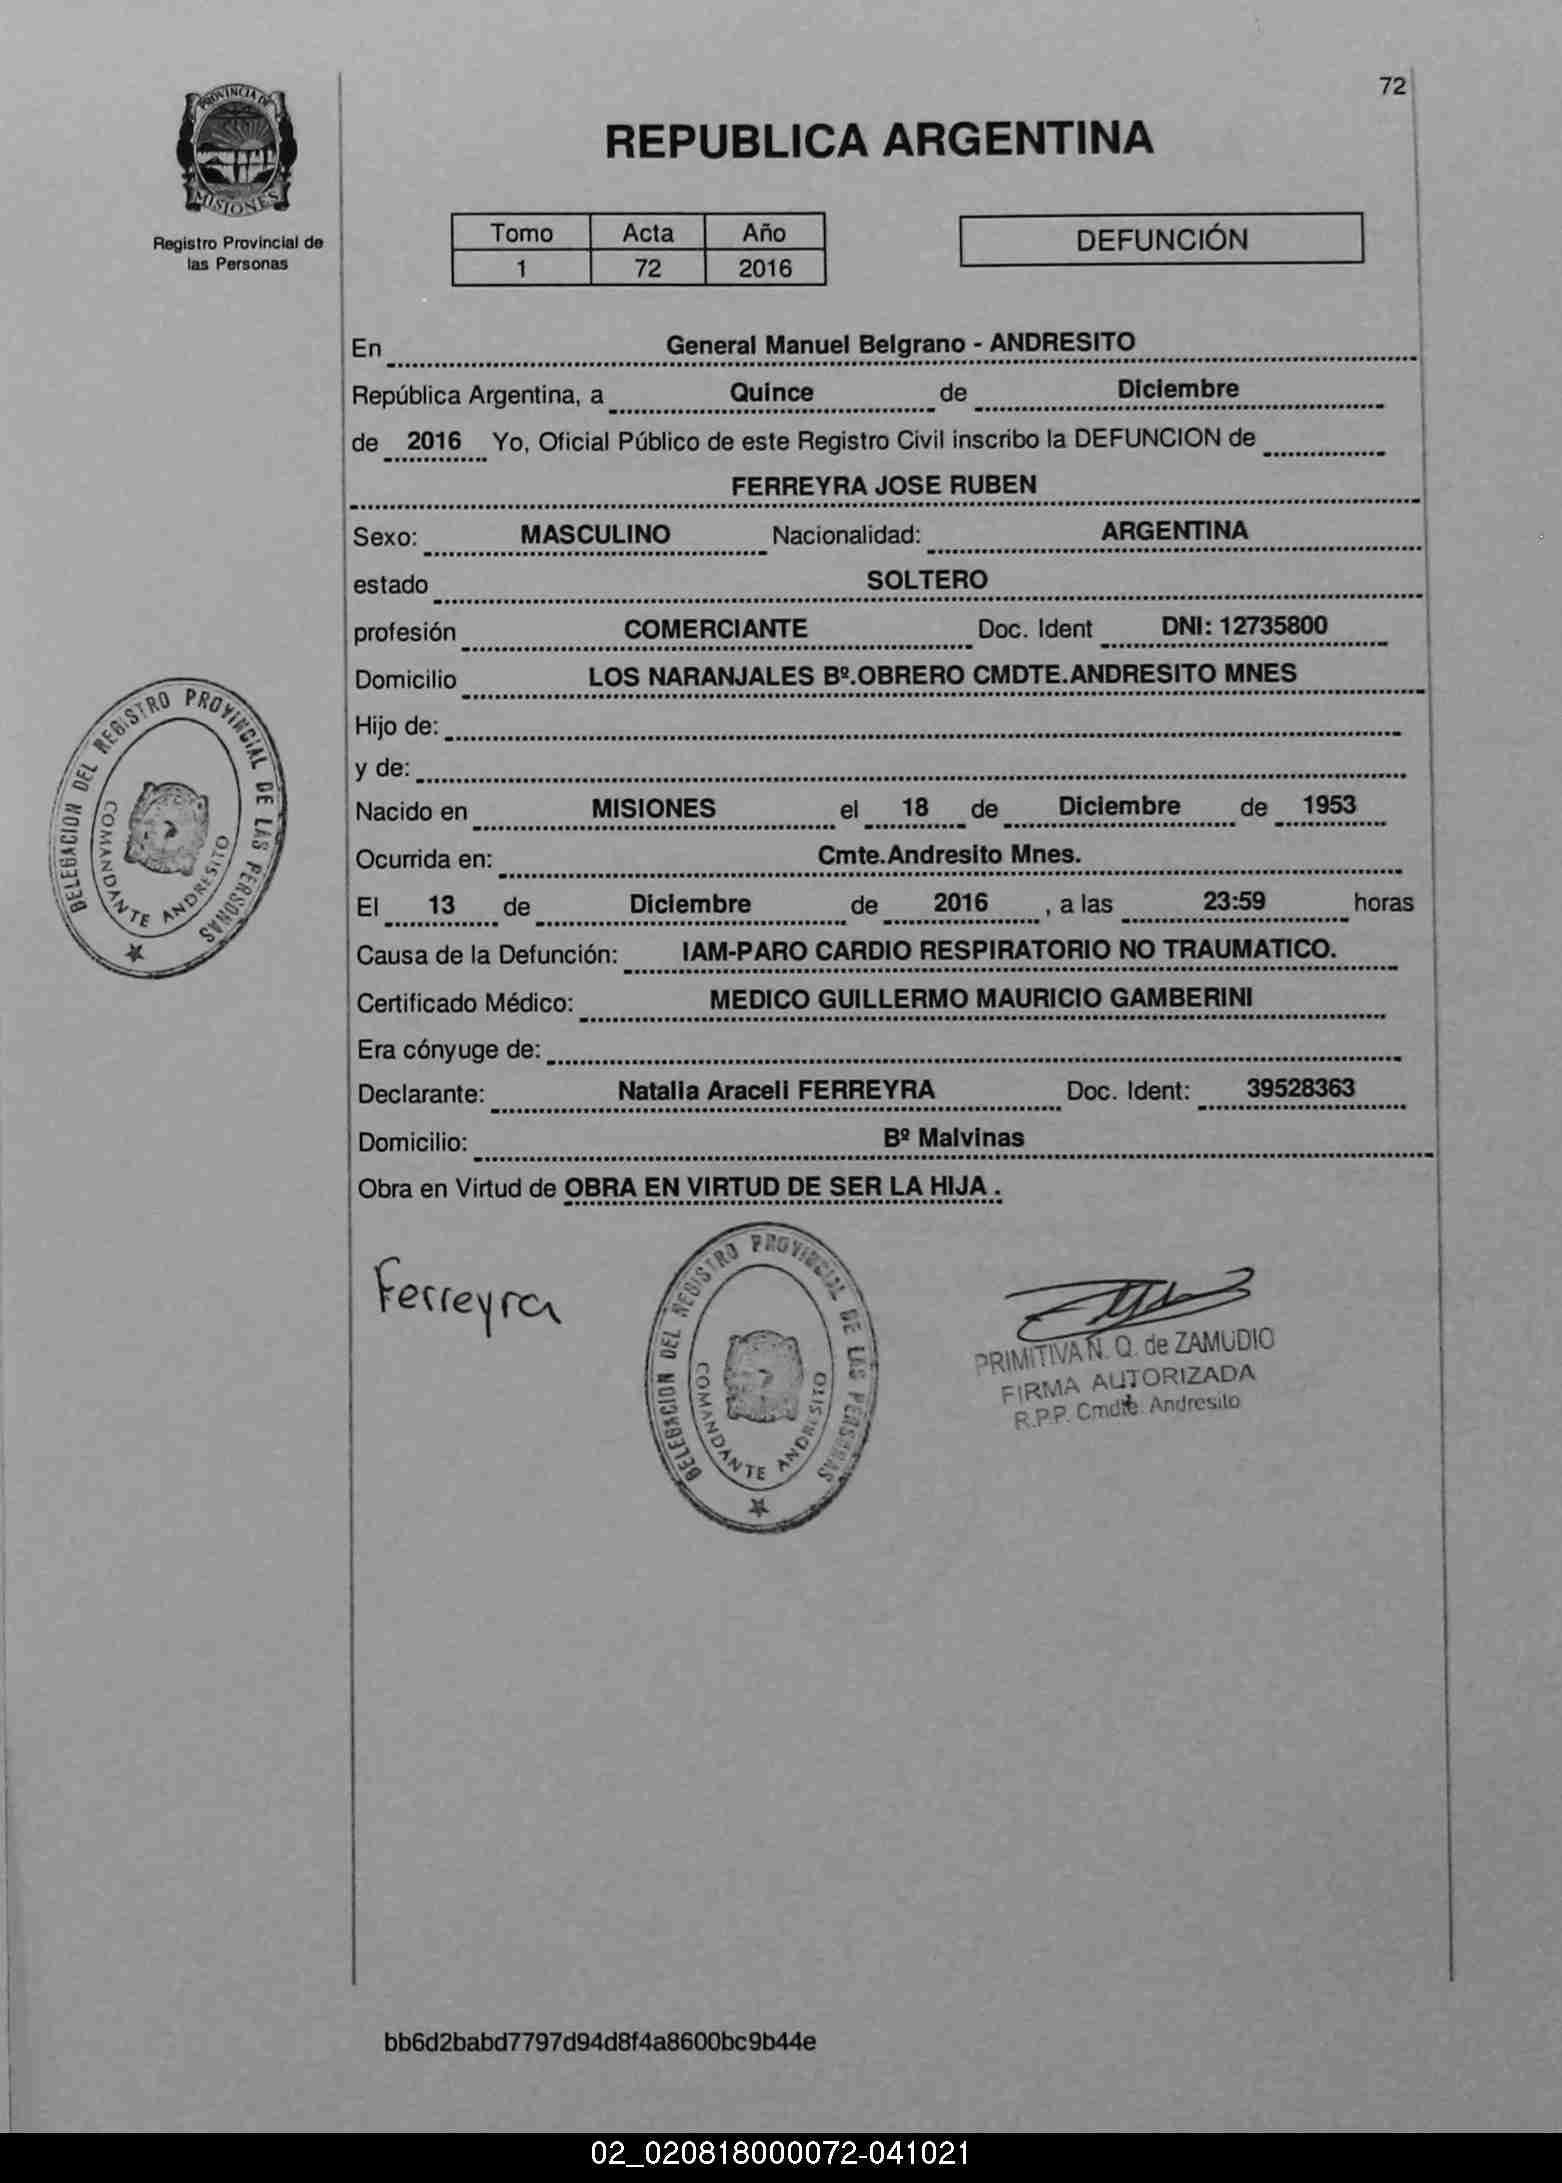 72
PROVINCIA DE
MISIONES
Registro Provincial de
las Personas
REPUBLICA ARGENTINA
Tomo Acta Año
1 72 2016
DEFUNCIÓN
En General Manuel Belgrano - ANDRESITO
República Argentina, a Quince de Diciembre
de 2016 Yo, Oficial Público de este Registro Civil inscribo la DEFUNCION de
FERREYRA JOSE RUBEN
Sexo: MASCULINO Nacionalidad: ARGENTINA
estado SOLTERO
profesión COMERCIANTE Doc. Ident DNI: 12735800
Domicilio LOS NARANJALES Bº.OBRERO CMDTE.ANDRESITO MNES
Hijo de:
y de:
Nacido en MISIONES el 18 de Diciembre de 1953
Ocurrida en: Cmte.Andresito Mnes.
El 13 de Diciembre de 2016 , a las 23:59 horas
Causa de la Defunción: IAM-PARO CARDIO RESPIRATORIO NO TRAUMATICO.
Certificado Médico: MEDICO GUILLERMO MAURICIO GAMBERINI
Era cónyuge de:
Declarante: Natalia Araceli FERREYRA Doc. Ident: 39528363
Domicilio: Bº Malvinas
Obra en Virtud de OBRA EN VIRTUD DE SER LA HIJA .
DELEGACION DEL REGISTRO PROVINCIAL DE LAS PERSONAS
COMANDANTE ANDRESITO
Ferreyra
DELEGACION DEL REGISTRO PROVINCIAL DE LAS PERSONAS
COMANDANTE ANDRESITO
PRIMITIVA N. Q. de ZAMUDIO
FIRMA AUTORIZADA
R.P.P. Cmdte. Andresito
bb6d2babd7797d94d8f4a8600bc9b44e
02_020818000072-041021